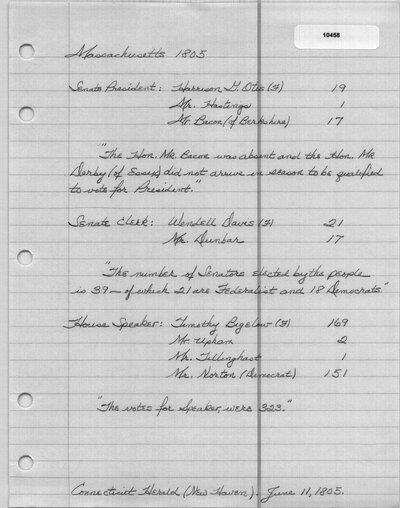 10458
Massachusetts 1805
Senate President: Harrison G. Otis (F) 19
Mr. Hastings 1
Mr. Bacon (of Berkshire) 17
"The Hon. Mr. Bacon was absent and the Hon. Mr.
Derby (of Essex) did not arrive in season to be qualified
to vote for President."
Senate Clerk: Wendell Davis (F) 21
Mr. Dunbar 17
"The number of Senators elected by the people
is 39 — of which 21 are Federalist and 18 Democrats"
House Speaker: Timothy Bigelow (F) 169
Mr. Upham 2
Mr. Tillinghast 1
Mr. Norton (Democrat) 151
"The votes for Speaker, were 323."
Connecticut Herald (New Haven). June 11, 1805.